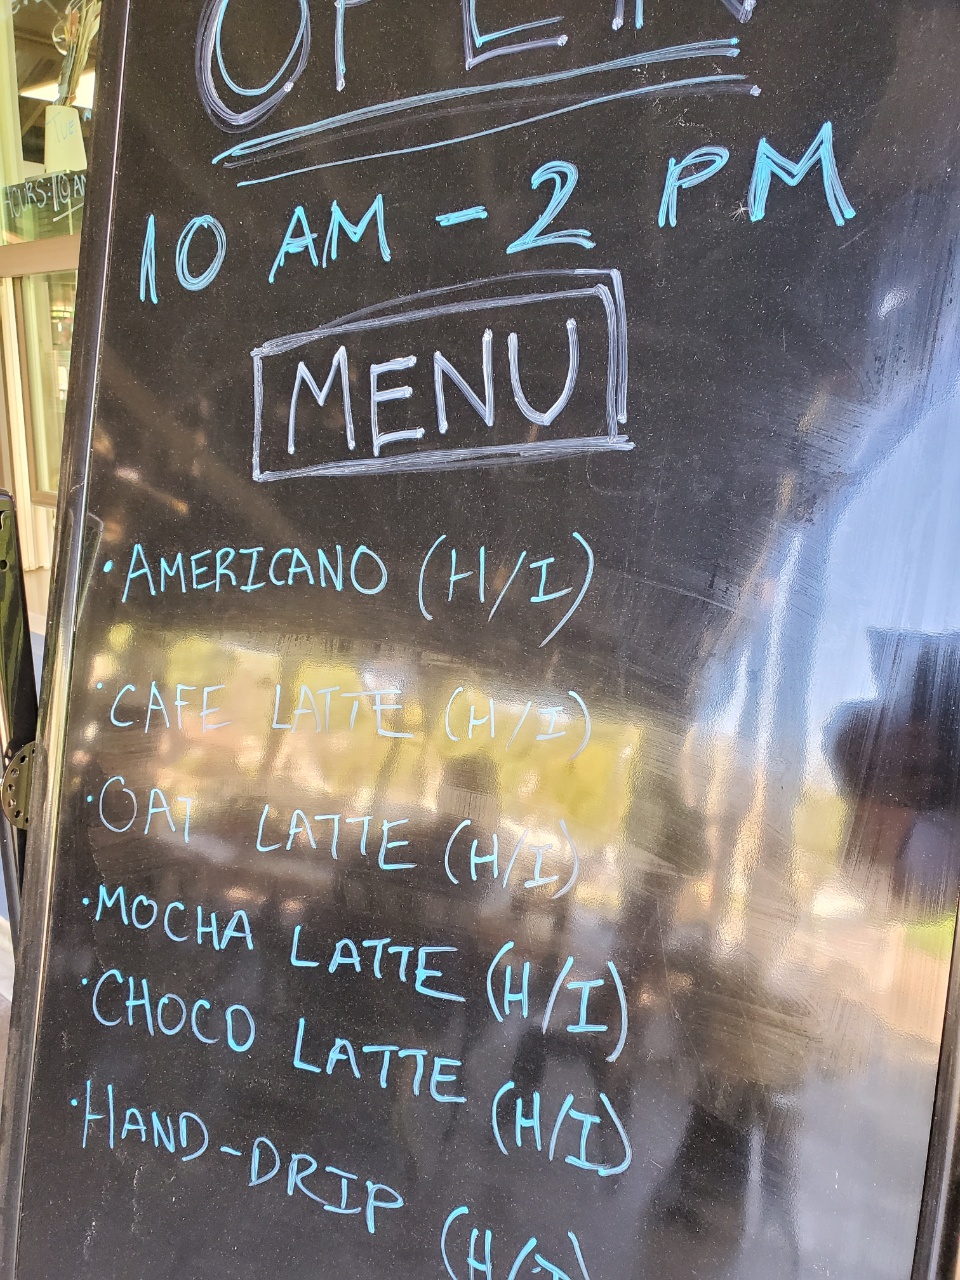 OPEN
10 AM - 2 PM
MENU
• AMERICANO (H/I)
• CAFE LATTE (H/I)
• OAT LATTE (H/I)
• MOCHA LATTE (H/I)
• CHOCO LATTE (H/I)
• HAND-DRIP (H/I)
TUE
HOURS: 10 AM